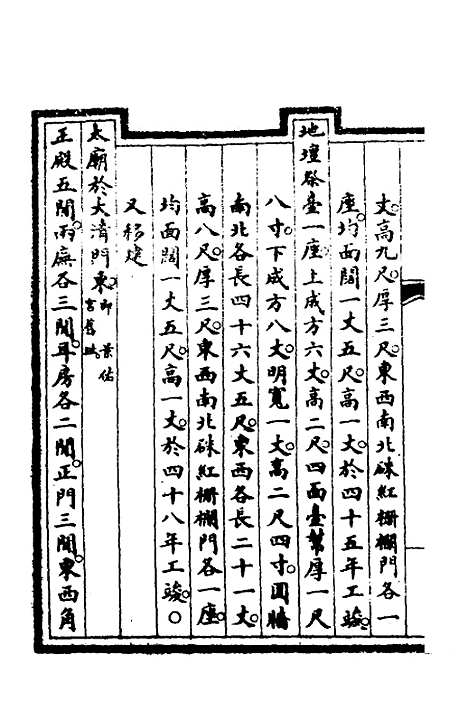 丈。高九尺。厚三尺。東西南北硃紅柵欄門各一
座。均面闊一丈五尺。高一丈。於四十五年工竣。
地壇祭臺一座。上成方六丈。高二尺。四面臺幫厚一尺
八寸。下成方八丈。明寬一丈。高二尺四寸。圓牆
南北各長四十六丈五尺。東西各長二十一丈。
高八尺。厚三尺。東西南北硃紅柵欄門各一座。
均面闊一丈五尺。高一丈。於四十八年工竣。○
又移建
太廟於大清門東。即景佑
宮舊址。
正殿五間。兩廡各三間。耳房各二間。正門三間。東西角